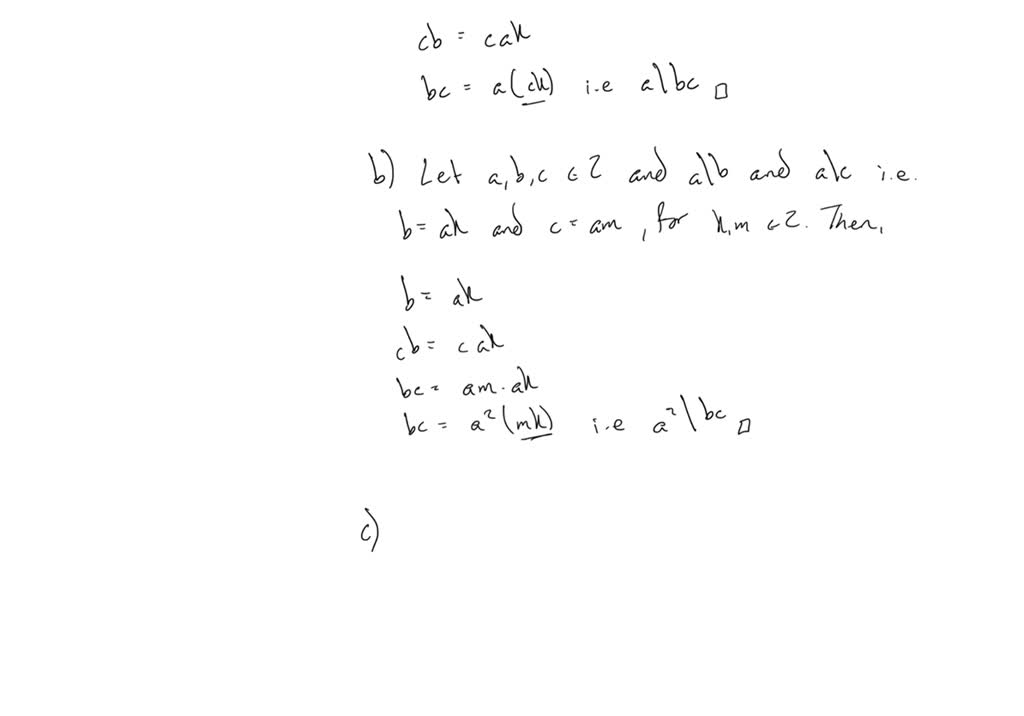 cb = cak
bc = a(ck) i.e a|bc □
b) Let a,b,c ∈ Z and a|b and a|c i.e.
b = ak and c = am , for k,m ∈ Z. Then,
b = ak
cb = cak
bc = am·ak
bc = a²(mk) i.e a²|bc □
c)